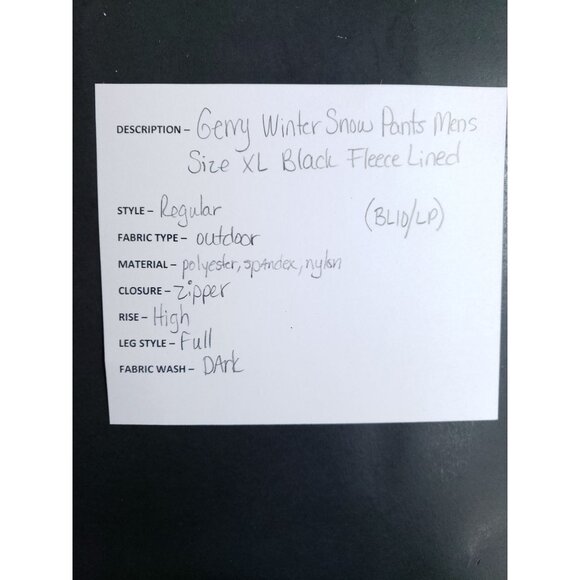 DESCRIPTION – Gerry Winter Snow Pants Mens
Size XL Black Fleece Lined
STYLE – Regular
(BL10/LP)
FABRIC TYPE – outdoor
MATERIAL – polyester, spandex, nylon
CLOSURE – Zipper
RISE – High
LEG STYLE – Full
FABRIC WASH – DArk